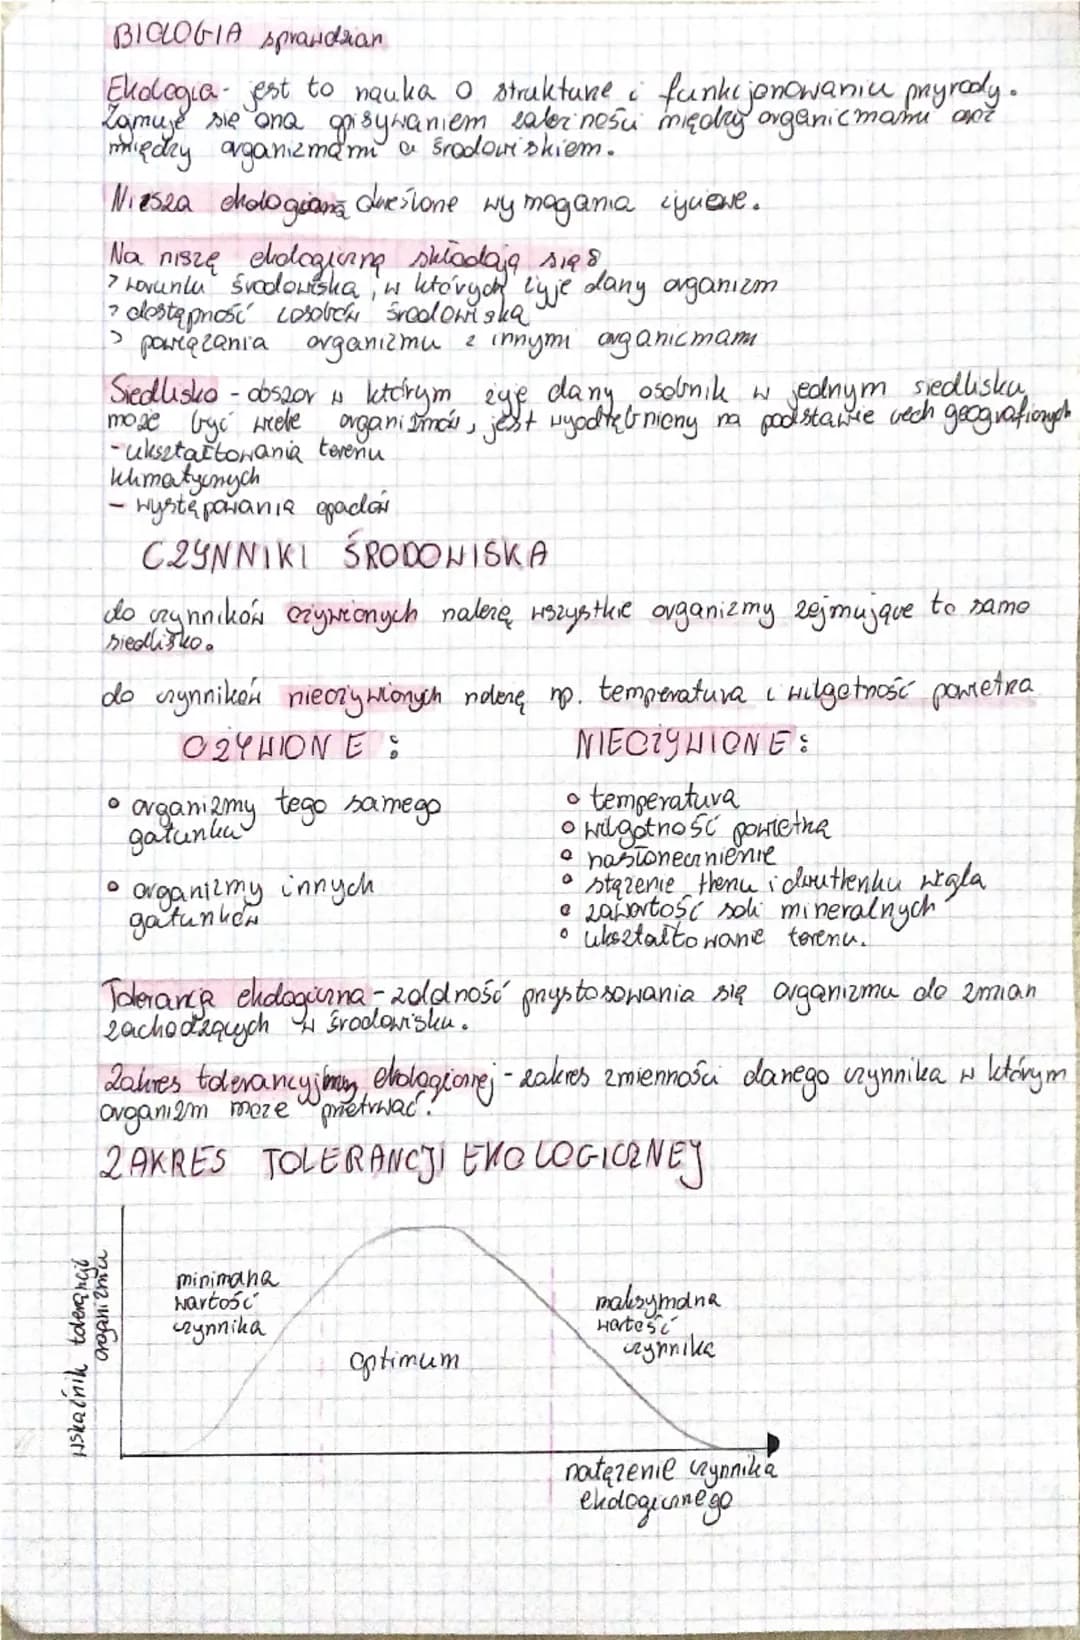 BIOLOGIA sprawdzian
Ekologia - jest to nauka o strukturze i funkcjonowaniu przyrody.
Zajmuje się ona opisywaniem zależności między organizmami oraz
między organizmami a środowiskiem.
Nisza ekologiczna określone wymagania życiowe.
Na niszę ekologiczną składają się:
> warunki środowiska, w których żyje dany organizm
> dostępność zasobów środowiska
> powiązania organizmu z innymi organizmami
Siedlisko - obszar w którym żyje dany osobnik w jednym siedlisku
może być wiele organizmów, jest wyodrębniony na podstawie cech geograficznych
- ukształtowania terenu
klimatycznych
- występowania opadów
CZYNNIKI ŚRODOWISKA
do czynników ożywionych należą wszystkie organizmy zajmujące to samo
siedlisko.
do czynników nieożywionych należą np. temperatura i wilgotność powietrza
OŻYWIONE:
NIEOŻYWIONE:
• organizmy tego samego
gatunku
• organizmy innych
gatunków
• temperatura
• wilgotność powietrza
• nasłonecznienie
• stężenie tlenu i dwutlenku węgla
• zawartość soli mineralnych
• ukształtowanie terenu.
Tolerancja ekologiczna - zdolność przystosowania się organizmu do zmian
zachodzących w środowisku.
Zakres ekologicznej - zakres zmienności danego czynnika w którym
organizm może przetrwać.
ZAKRES TOLERANCJI EKOLOGICZNEJ
wskaźnik tolerancji
organizmu
minimalna
wartość
czynnika
optimum
maksymalna
wartość
czynnika
natężenie czynnika
ekologicznego